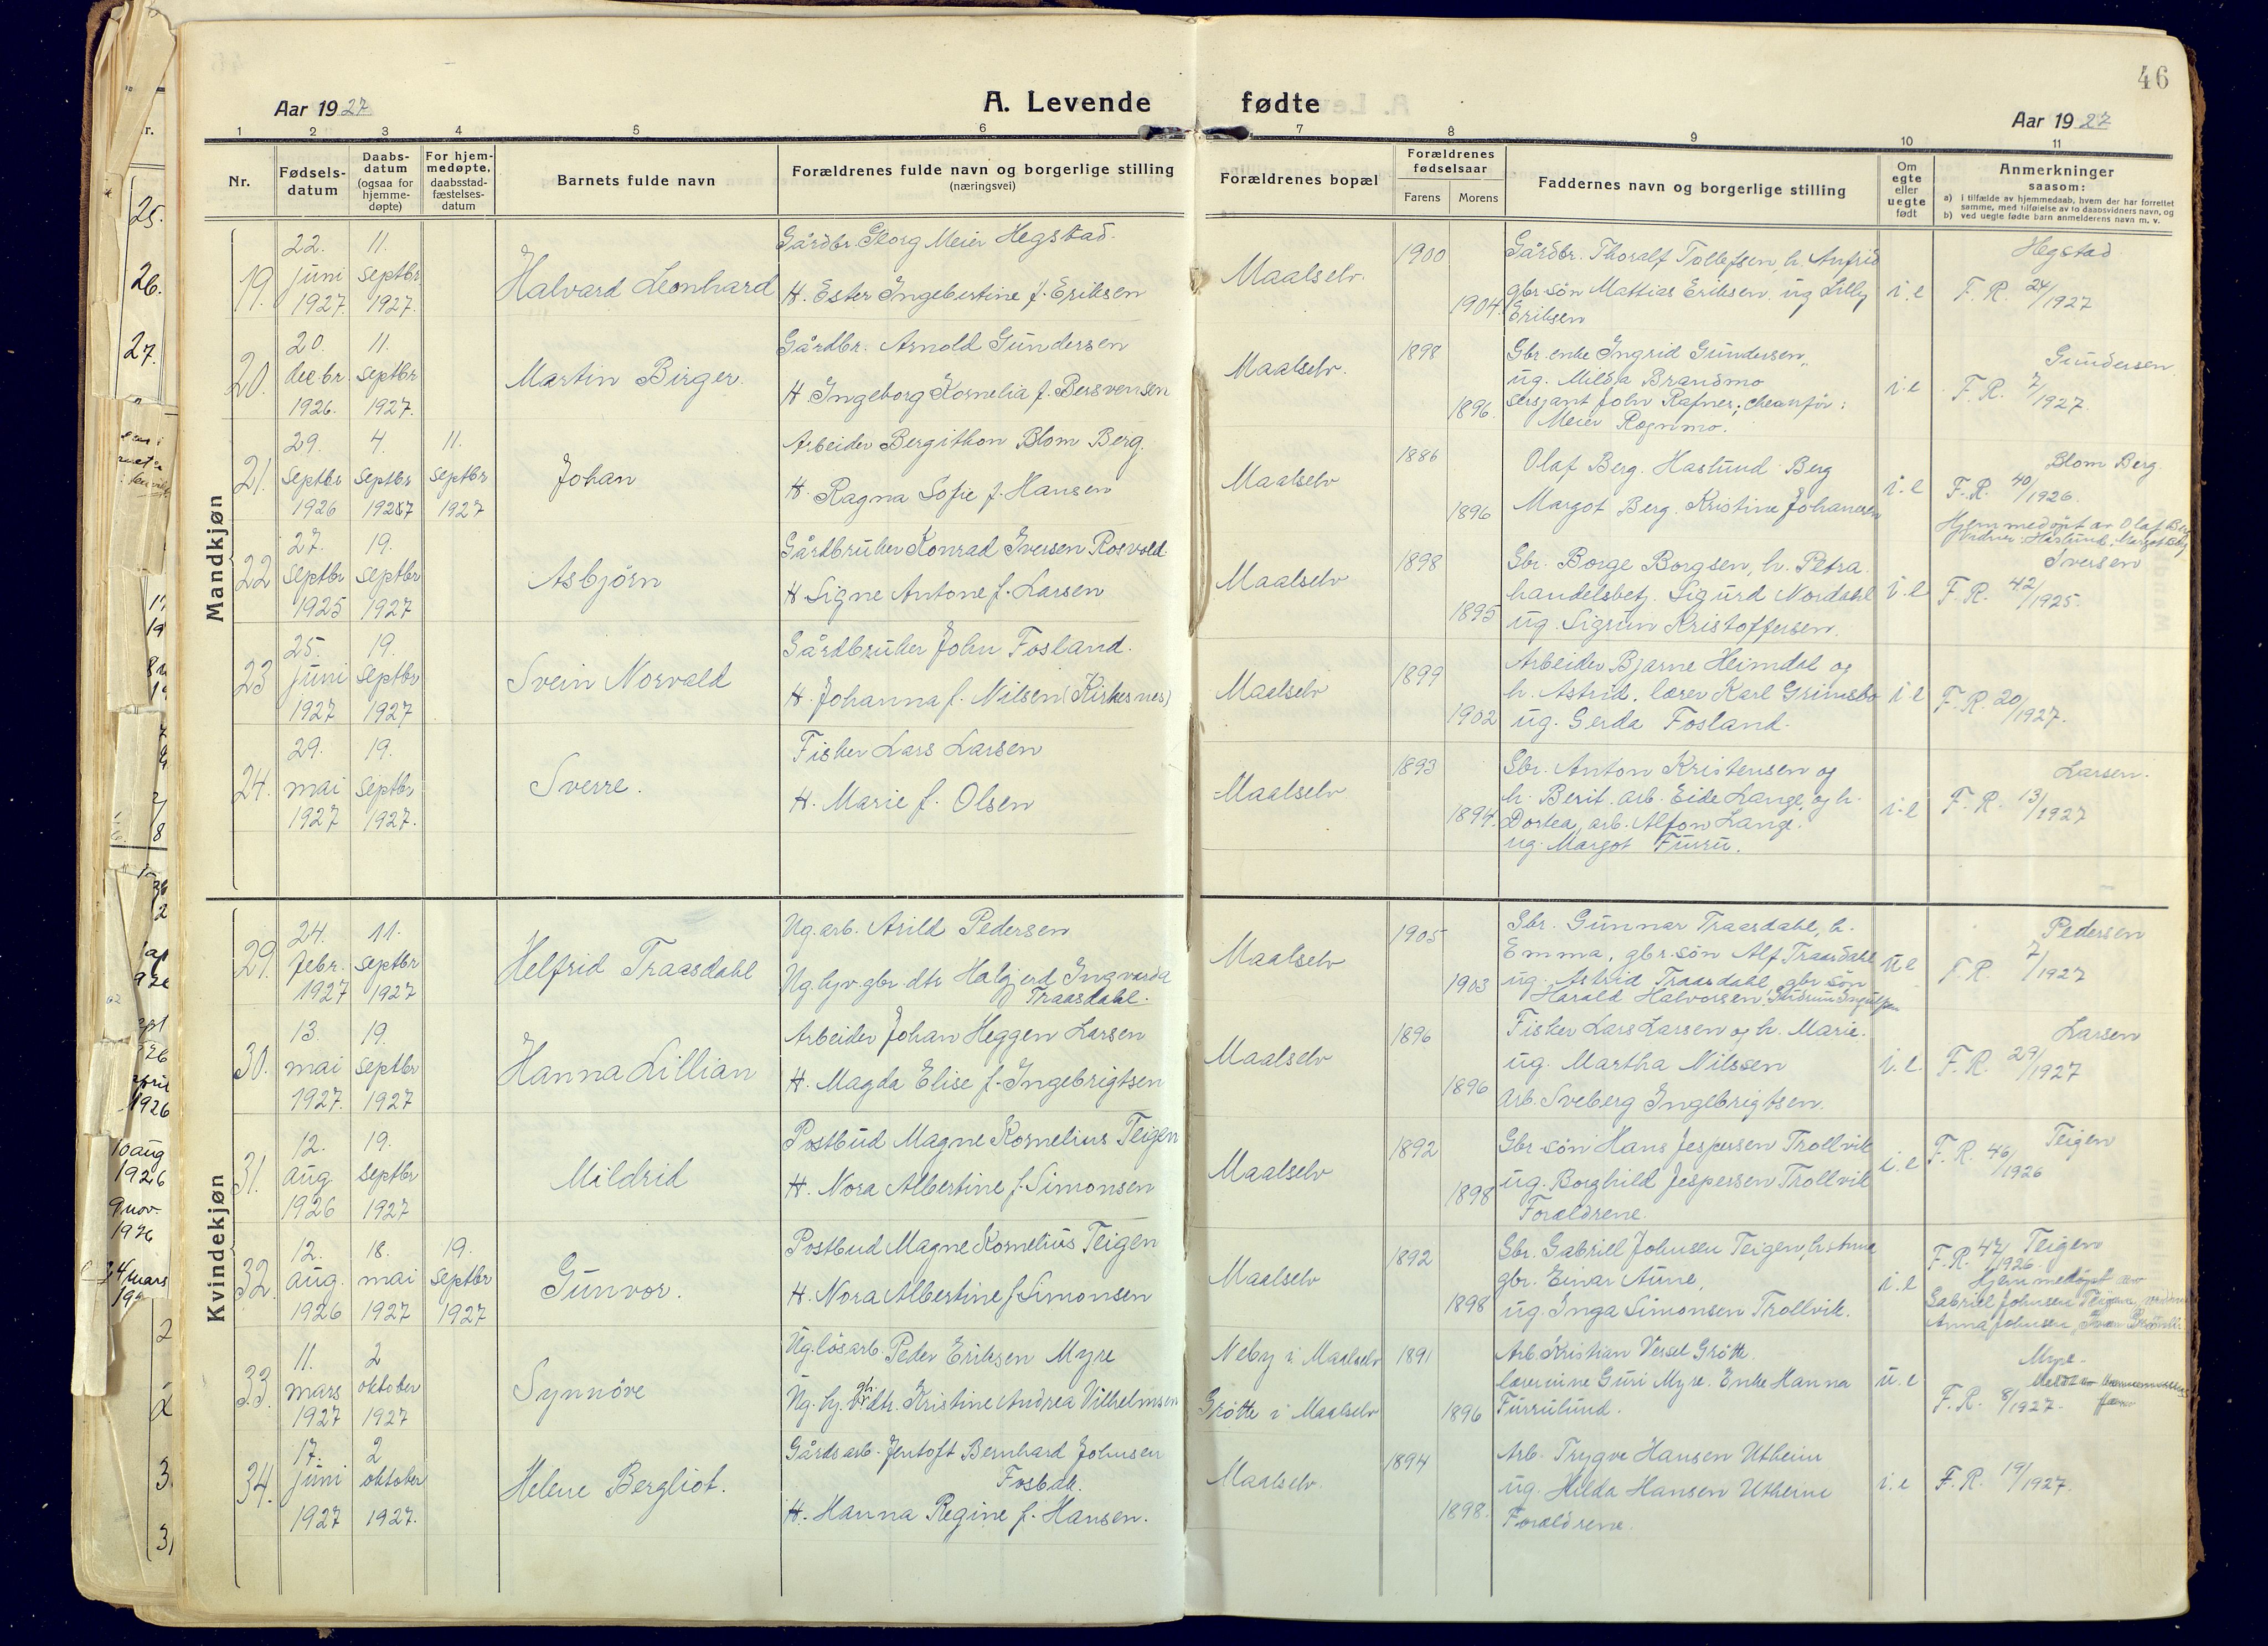 46
Aar 1927
A. Levende fødte
Aar 1927
1 2 3 4 5 6 7 8 9 10 11
Nr.
Fødsels-
datum
Daabs-
datum
(ogsaa for
hjemme-
døpte)
For hjem-
medøpte,
daabsstad-
fæstelses-
datum
Barnets fulde navn
Forældrenes fulde navn og borgerlige stilling
(næringsvei)
Forældrenes bopæl
Forældrenes
fødselsaar
Farens Morens
Faddernes navn og borgerlige stilling
Om
egte
eller
uegte
født
Anmerkninger
saasom:
a) i tilfælde av hjemmedaab, hvem der har forrettet
samme, med tilføielse av to daabsvidners navn, og
b) ved uegte fødte barn anmelderens navn m. v.
Mandkjøn
19.
22.
juni
1927.
11.
septbr
1927.
Halvard Leonhard
Gårdbr. Georg Meier Hegstad.
H. Ester Ingebertine f. Eriksen
Maalselv.
1900
1904.
Gårdbr. Thoralf Tollefsen, h. Anfrid
gbr søn Mattias Eriksen. ug Lilly
Eriksen
i.e
Hegstad
F. R. 24/1927
20.
20.
decbr
1926.
11.
septbr
1927.
Martin Birger.
Gårdbr. Arnold Gundersen
H. Ingeborg Kornelia f. Bersvensen
Maalselv.
1898
1896.
Gbr. enke Ingrid Gundersen,
ug. Milda Brandmo
sersjant John Rafner,
Meier Rognmo.
i.e
Gundersen
F. R. 7/1927.
21.
29.
septbr
1926
4.
septbr
1927
11.
septbr
1927
Johan
Arbeider Bergithon Blom Berg.
H. Ragna Sofie f. Hansen
Maalselv
1886
1896
Olaf Berg. Haslund Berg
Margot Berg. Kristine Johansen
i.e
Blom Berg.
F. R. 40/1926.
Hjemmedøpt av Olaf Berg
Vidner: Haslund, Margot Berg
22
27.
septbr
1925
19.
septbr
1927
Asbjørn
Gårdbruker Konrad Iversen Rosvold
H. Signe Antone f. Larsen
Maalselv
1898
1895
Gbr. Borge Borgsen, h. Petra.
handelsbetj. Sigurd Nordahl
ug. Sigrun Kristoffersen.
i.e
Iversen
F. R. 42/1925.
23
25.
juni
1927
19.
septbr
1927
Svein Norvald
Gårdbruker John Fosland.
H. Johanna f. Nilsen (Kirkesnes)
Maalselv
1899
1902
Arbeider Bjarne Heimdal og
h. Astrid. lærer Karl Grimsbo
ug. Gerda Fosland.
i.e
F. R. 20/1927.
24.
29.
mai
1927
19.
septbr
1927.
Sverre.
Fisker Lars Larsen
H. Marie f. Olsen
Maalselv
1893
1894.
Gbr. Anton Kristensen og
h. Berit. arb. Eide Lange, og h.
Dortea, arb. Alfon Lange.
ug. Margot Furru.
i.e
Larsen.
F. R. 13/1927
Kvindekjøn
29.
24.
febr.
1927
11.
septbr
1927
Helfrid Traasdahl
Ug. arb. Arild Pedersen
Ug. hjv. gbr dtr Halgjerd Ingvarda
Traasdahl.
Maalselv
1905
1903
Gbr. Gunnar Traasdahl, h.
Emma, gbr. søn Alf Traasdahl
ug. Astrid Traasdahl, gbr søn
Harald Halvorsen,
u e
Pedersen
F. R. 7/1927
30.
13.
mai
1927.
19.
septbr
1927
Hanna Lillian
Arbeider Johan Heggen Larsen
H. Magda Elise f. Ingebrigtsen
Maalselv
1896
1896
Fisker Lars Larsen og h. Marie.
ug. Martha Nilssen
arb. Sveberg Ingebrigtsen.
i.e.
Larsen
F. R. 29/1927
31.
12.
aug.
1926
19.
septbr
1927
Mildrid
Postbud Magne Kornelius Teigen
H. Nora Albertine f. Simonsen
Maalselv
1892
1898
Gbr søn Hans Jespersen Trollvik
ug. Borghild Jespersen Trollvik
Forældrene.
i.e
Teigen
F. R. 46/1926
32.
12.
aug.
1926
18.
mai
1927
19.
septbr
1927
Gunvor.
Postbud Magne Kornelius Teigen
H. Nora Albertine f. Simonsen
Maalselv
1892
1898
Gbr. Gabriel Johnsen Teigen, h. Anna
gbr. Einar Aune,
ug. Inga Simonsen Trollvik.
i.e
F. R. 47/1926. Teigen
Hjemmedøpt av
Gabriel Johnsen Teigen,
Anna Johnsen,
33.
11.
mars
1927
2
oktober
1927
Synnøve
Ug. løsarb. Peder Eriksen Myre
Ug. hj. dtr. Kristine Andrea Vilhelmsen
Neby i Maalselv
Grøtte i Maalselv
1891
1896
Arb. Kristian Versel Grøtte.
lærerinne Guri Myre. Enke Hanna
Furrulund.
u.e
Myre.
F. R. 8/1927.
34.
17.
juni
1927
2
oktober
1927.
Helene Bergliot.
Gårdsarb. Jentoft Bernhard Johnsen
Fosbak.
H. Hanna Regine f. Hansen.
Maalselv.
1894
1898.
Arb. Trygve Hansen Utheim
ug. Hilda Hansen Utheim
Forældrene.
i.e
F. R. 19/1927.
25.
26.
27.
10 aug
1926
9 nov.
1926